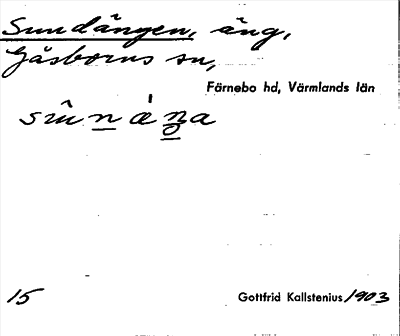 Sundängen, äng,
Gåsborns sn,
Färnebo hd, Värmlands län
15
Gottfrid Kallstenius 1903